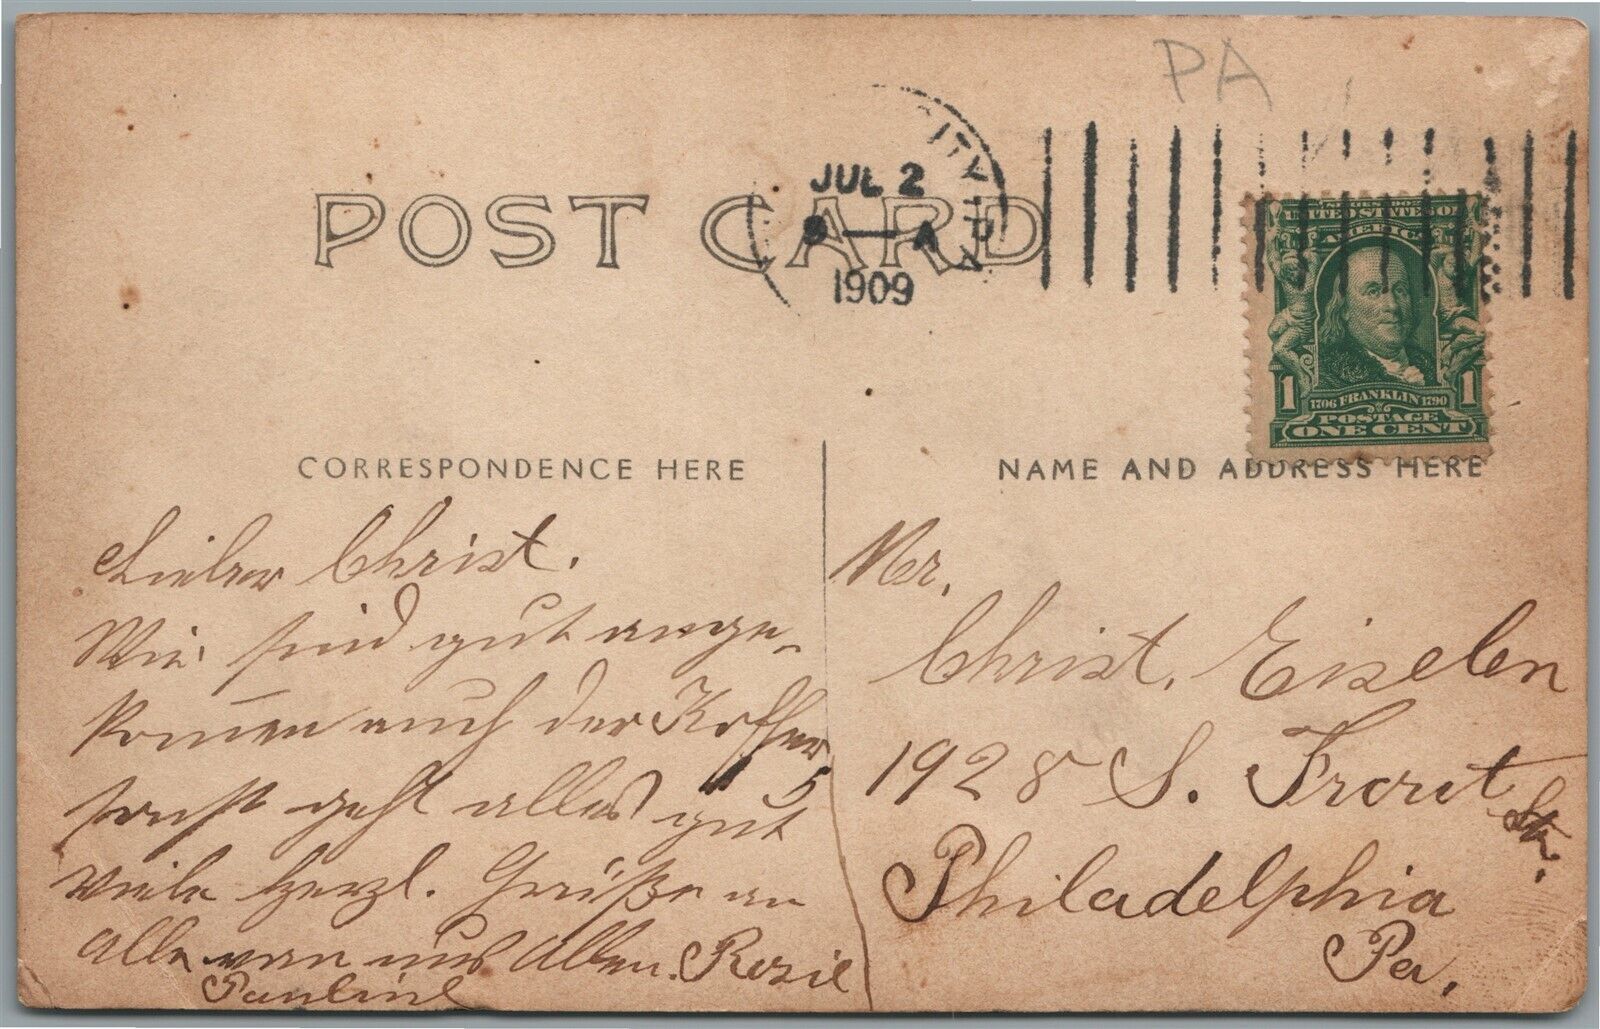 PA
ITY, PA
JUL 2
A
1909
POST CARD
SERIES 1902
UNITED STATES OF
AMERICA
1 1706 FRANKLIN 1790 1
POSTAGE
ONE CENT
CORRESPONDENCE HERE
Lieber Christ.
Wir sind gut ange-
kom̄en auch der Koffer
sonst geht alles gut
Viele herzl. Grüße an
Alle von uns Allen. Rosie
Pauline
NAME AND ADDRESS HERE
Mr.
Christ. Eiselen
1928 S. Front St.
Philadelphia
Pa.